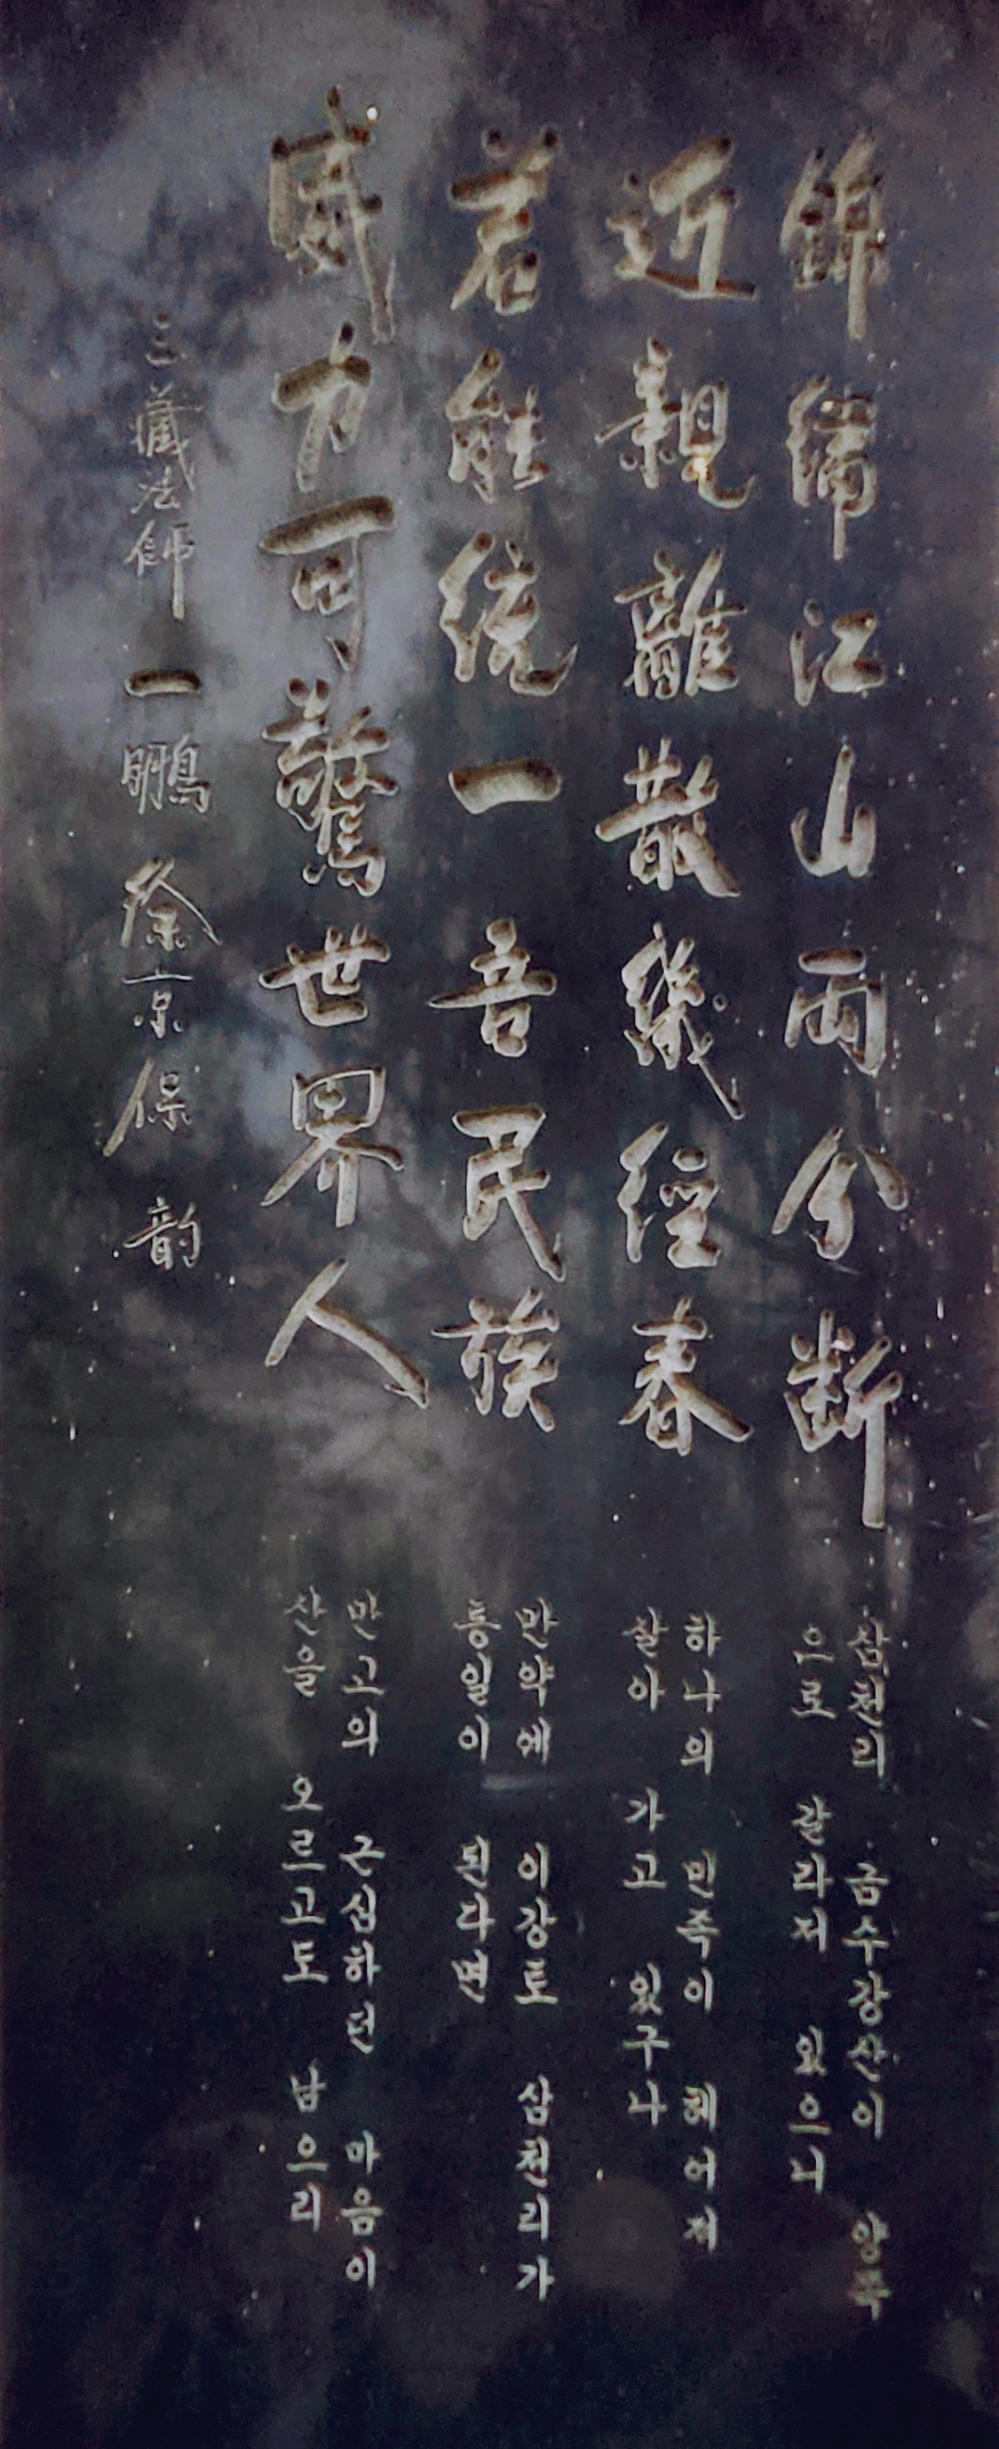 錦繡江山兩分斷
삼천리 금수강산이 양쪽
으로 갈라저 있으니
近親離散幾經春
하나의 민족이 헤어저
살아 가고 있구나
若能統一吾民族
만약에 이강토 삼천리가
통일이 된다면
威力可驚世界人
만고의 근심하던 마음이
산을 오르고도 남으리
三藏法師 一鵬 徐京保 韵